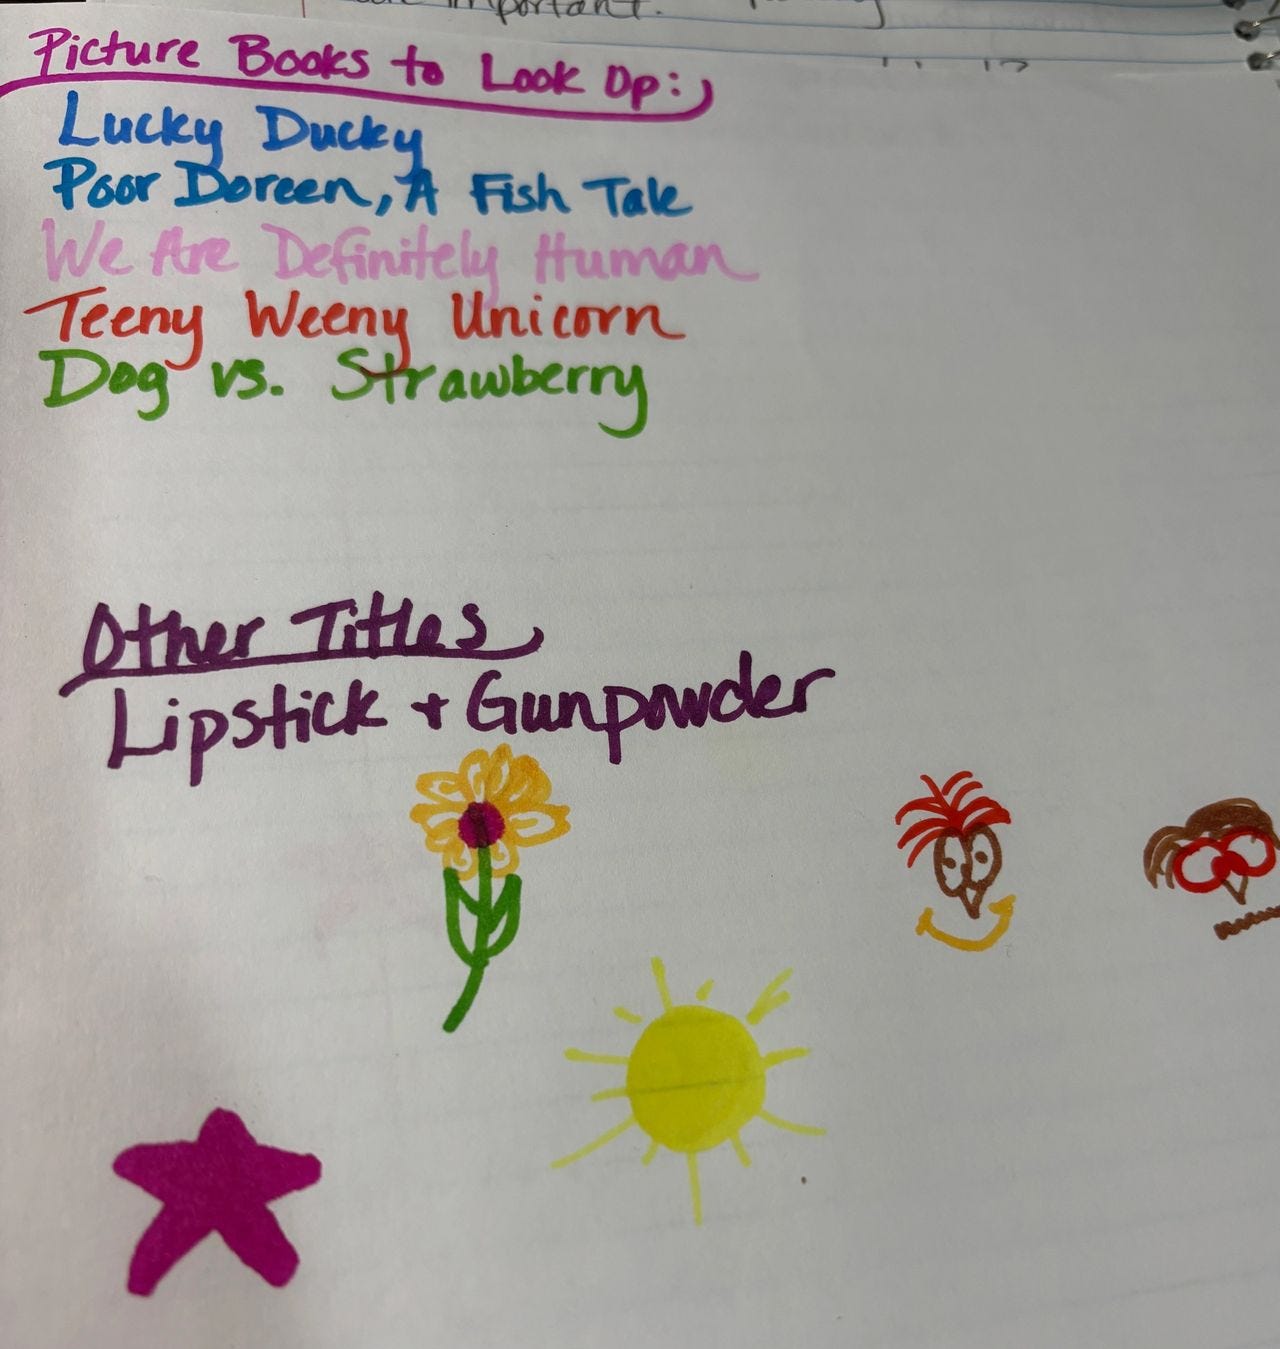 important.
Picture Books to Look Up:
Lucky Ducky
Poor Doreen, A Fish Tale
We Are Definitely Human
Teeny Weeny Unicorn
Dog vs. Strawberry
Other Titles
Lipstick + Gunpowder